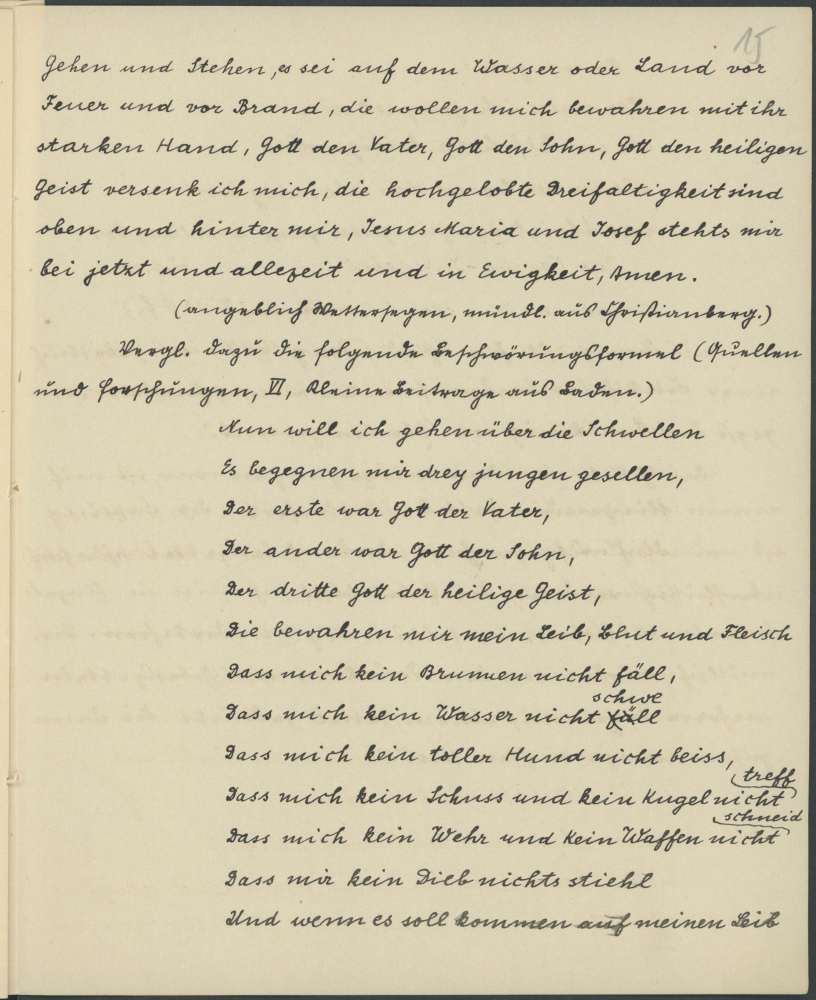 15
Gehen und Stehen, es sei auf dem Wasser oder Land vor
Feuer und vor Brand, die wollen mich bewahren mit ihr
starken Hand, Gott den Vater, Gott den Sohn, Gott den heiligen
Geist versenk ich mich, die hochgelobte Dreifaltigkeit sind
oben und hinter mir, Jesus Maria und Josef stehts mir
bei jetzt und allezeit und in Ewigkeit, Amen.
(angeblich Wettersegen, mündl. aus Christianberg.)
Vergl. dazu die folgende Beschwörungsformel (Quellen
und Forschungen, VI, Kleine Beitrage aus Baden.)
Nun will ich gehen über die Schwellen
Es begegnen mir drey jungen gesellen,
Der erste war Gott der Vater,
Der ander war Gott der Sohn,
Der dritte Gott der heilige Geist,
Die bewahren mir mein Leib, Blut und Fleisch
Dass mich kein Brunnen nicht fäll,
Dass mich kein Wasser nicht schwell
Dass mich kein toller Hund nicht beiss,
Dass mich kein Schuss und kein Kugel nicht treff
Dass mich kein Wehr und kein Waffen nicht schneid
Dass mir kein Dieb nichts stiehl
Und wenn es soll kommen auf meinen Leib